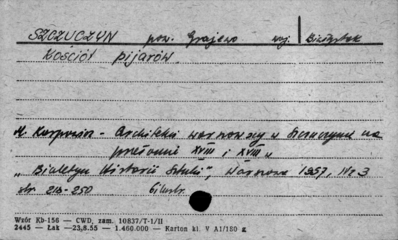 SZCZUCZYN pow. Grajewo woj. Białystok
Kościół pijarów.
M. Karpowicz - Architekci warszawscy w Szczuczynie na
przełomie XVII i XVIII w.
„Biuletyn Historii Sztuki”, Warszawa 1957, Nr 3
str. 248-250 ilustr.
Wzór Kb-156 — CWD, zam. 10837/T-1/II
2445 — Łąk —23.8.55 — 1.460.000 — Karton kl. V A1/180 g